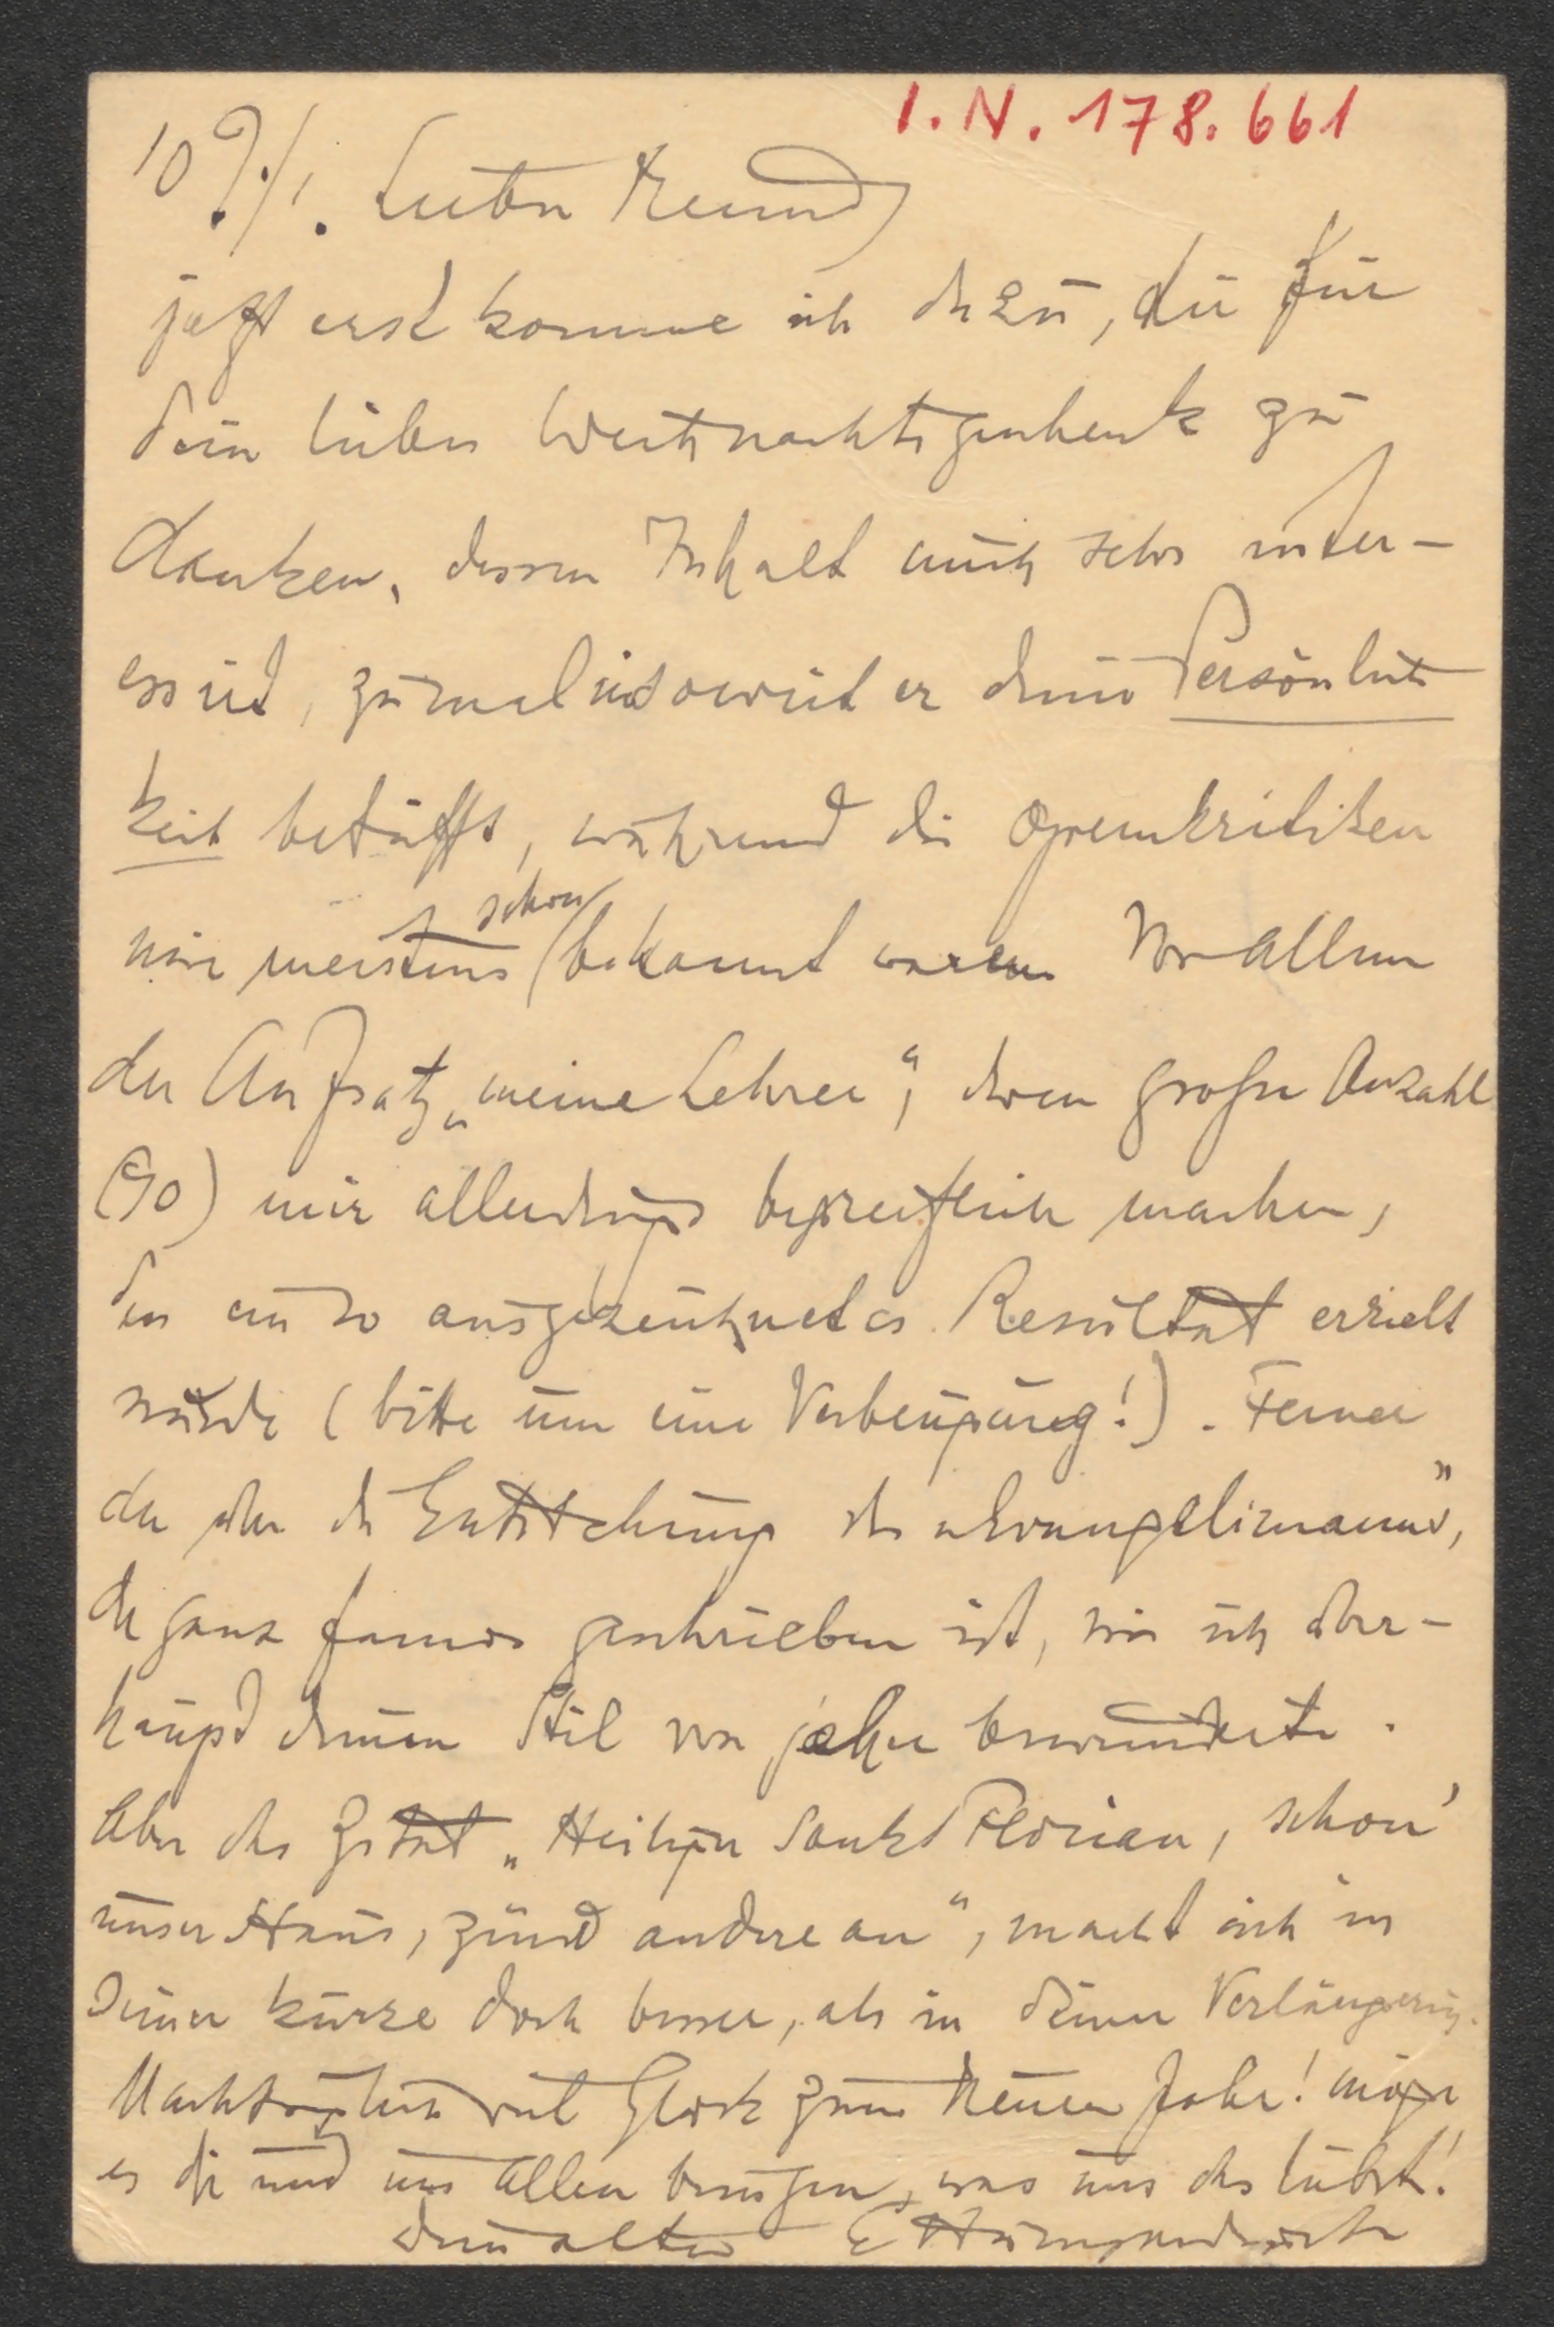 I. N. 178.661
10./1. Lieber Freund
jetzt erst komme ich dazu, dir für
dein liebes Weihnachtsgeschenk zu
danken, dessen Inhalt mich sehr inter-
essiert, zumal insoweit er deine Persönlich
keit betrifft, während die Opernkritiken
mir meistens schon bekannt waren Vor allem
der Aufsatz „meine Lehrer“, deren große Anzahl
(90) mir allerdings begreiflich machen,
dass ein so ausgezeichnetes Resultat erzielt
wurde (bitte um eine Verbeugung!). Ferner
der über die Entstehung des „Evangelimanns“,
der ganz famos geschrieben ist, wie ich über-
haupt deinen Stil von jeher bewunderte.
Aber das Zitat „Heiliger Sankt Florian, schon'
unser Haus, zünd andere an“, macht sich in
seiner Kürze doch besser, als in deiner Verlängerung.
Nachträglich viel Glück zum Neuen Jahr! möge
es dir und uns Allen bringen, was uns das liebste!
dein alter E Humperdinck